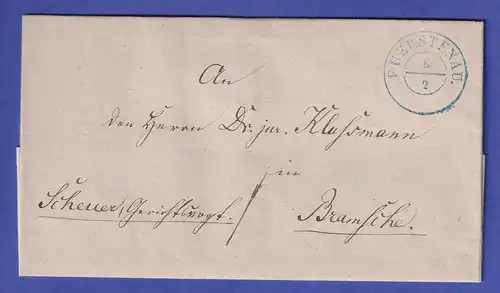 FUERSTENAU.
8
2
An
den Herrn Dr. jur. Klussmann
in
Scheuer, Gerichtsvogt.
Bramsche.